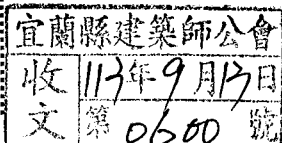 宜蘭縣建築師公會
收文
113年9月13日
第0600號